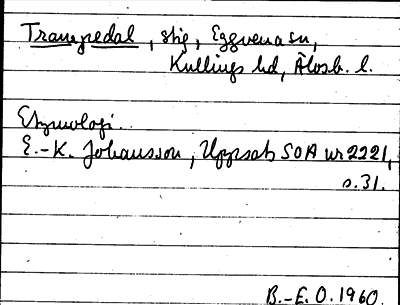 Tranepedal, stig, Eggvena sn,
Kullings hd, Älvsb. l.
Etymologi.
E.-K. Johansson, Uppsats SOA nr 2221,
s. 31.
B.-E. O. 1960.